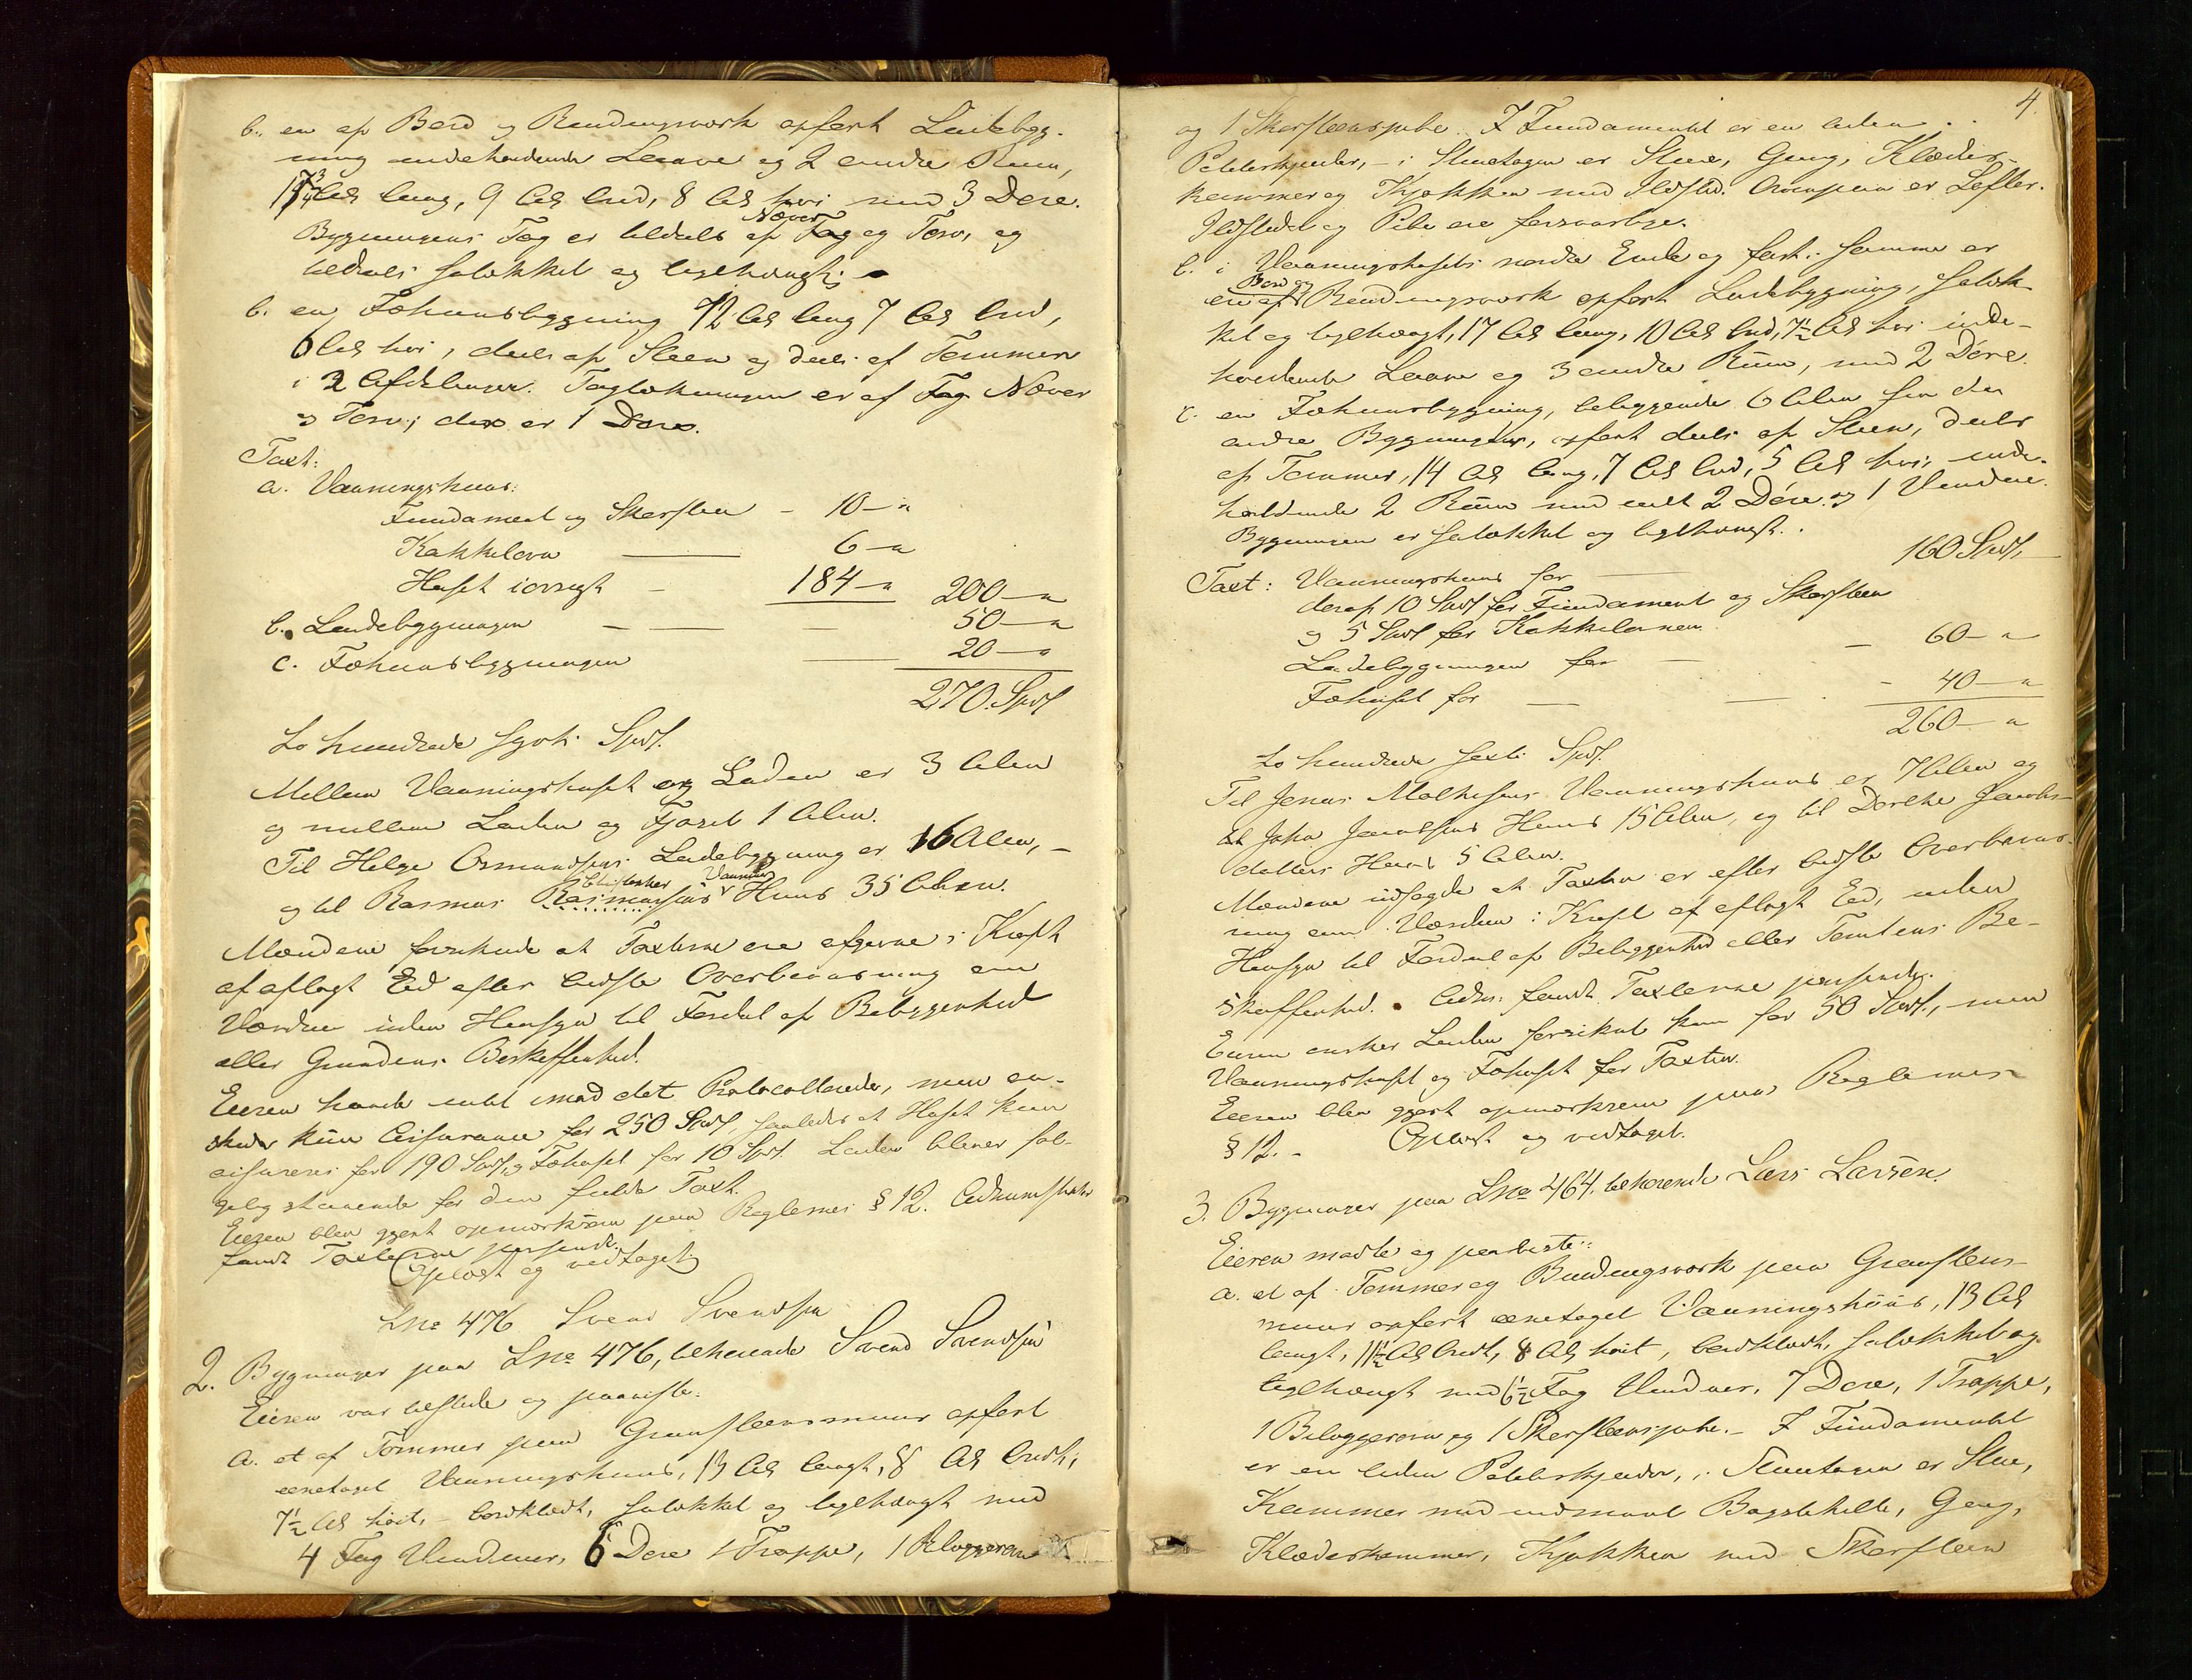 b. en af Bord og Bindingsverk opført Ladebyg-
ning indeholdende Laave og 2 andre Rum,
Al. lang, 9 Al. bred, 8 Al. høi med 3 Døre.
Bygningens Tag er tildels af Næver og Torv, og
tildels sutækket og teglhængt;
b. en Fæhuusbygning 12 Al. lang 7 Al. bred,
6 Al. høi, deels af Steen og deels af Tømmer
i 2 Afdelinger. Tagtækningen er af Tag Næver
og Torv; der er 1 Dør.
Taxt:
a. Vaaningshuus:
Fundament og Skorsteen - 10 - "
Kakkelovn — 6 - "
Huset iøvrigt - 184 - " 200 - "
b. Ladebygningen - — — 50 - "
c. Fæhuusbygningen — 20 - "
270. Spd
to hundrede sytti Spd.
Mellem Vaaningshuset og Laden er 3 Alen
og mellem Laden og Fjøset 1 Alen.
Til Helge Osmundsens Ladebygning er 16 Alen, -
og til Rasmus Rasmussens Vaaning Huus 35 Alen.
Mændene forsikrede at Taxterne ere afgivne i Kraft
af aflagt Eed efter bedste Overbeviisning om
Værdien uden Hensyn til Fordel af Beliggenhed
eller Grundens Beskaffenhed.
Eieren havde intet imod det Protocollerede, men øn-
skede kun Assurance for 250 Spd, saaledes at Huset kun
assureres for 190 Spd, og Fæhuset for 10 Spd. Laden bliver føl-
gelig staaende for den fulde Taxt.
Eieren blev gjort opmærksom paa Reglernes § 12. Administrator
fandt Taxterne passende.
Oplæst og vedtaget
Lne 476 Svend Svendsen
2. Bygninger paa Lne 476, tilhørende Svend Svendsen
Eieren var tilstede og paaviste:
a. et af Tømmer paa Graasteensmuur opført
eenetaget Vaaningshuus, 13 Al. langt, 8 Al. bredt,
7½ Al. høit, - bordklædt, sutækket og teglhængt med
4 Fag Vinduer, 6 Døre 1 Trappe, 1 Bilæggerovn
4.
og 1 Skorsteenspibe. I Fundamentet er en liden
Potteskjelder, - i Stuetagen er Stue, Gang, Klæder-
kammer og Kjøkken med Ildsted. Ovenpaa er Lofter.
Ildstedet og Pibe ere forsvarlige.
b. i Vaaningshusets nordre Ende og fast i samme er
en af Bord og Bindingsverk opført Ladebygning, sutæk-
ket og teglhængt, 17 Al. lang, 10 Al. bred, 7½ Al. høi inde-
holdende Laave og 3 andre Rum, med 2 Døre.
c. en Fæhuusbygning, beliggende 6 Alen fra den
andre Bygninger, opført deels af Steen, deels
af Tømmer, 14 Al. lang, 7 Al. bred, 5 Al. høi, inde-
holdende 2 Rum med 2 Døre og 1 Vindue.
Bygningen er sutækket og teglhængt.
Taxt: Vaaningshuus for — 160 Spd,
deraf 10 Spd for Fundament og Skorsteen
og 5 Spd for Kakkelovnen.
Ladebygningen for — - 60 - "
Fæhuset for — — - 40 - "
260 - "
to hundrede sexti Spd.
Til Jonas Mathisens Vaaningshuus er 7 Alen og
til John Jacobsens Huus 15 Alen, og til Dorthe Jacobs-
datters Huus 5 Alen.
Mændene udsagde at Taxten er efter bedste Overbeviis-
ning om Værdien i Kraft af aflagt Eed, uden
Hensyn til Fordel af Beliggenhed eller Tomtens Be-
skaffenhed. Adm. fandt Taxterne passende.
Eieren ønsker Laden forsikret kun for 50 Spd., men
Vaaningshuset og Fæhuset for Taxten.
Eieren blev gjort opmærksom paa Reglernes
§ 12. - Oplæst og vedtaget.
3. Bygninger paa Lne 464, tilhørende Lars Larsen.
Eieren mødte og paaviste:
a. et af Tømmer og Bindingsverk paa Graasteens-
muur opført eenetaget Vaaningshuus, 13 Al.
langt, 11½ Al. bredt, 8 Al. høit, bordklædt, sutækket og
teglhængt med 6½ Fag Vinduer, 7 Døre, 1 Trappe,
1 Bilæggerovn og 1 Skorsteenspibe. - I Fundamentet
er en liden Potteskjelder, i Stuetagen er Stue,
Kammer med indmuret Bagstehelle, Gang,
Klæderkammer, Kjøkken med Skorsteen